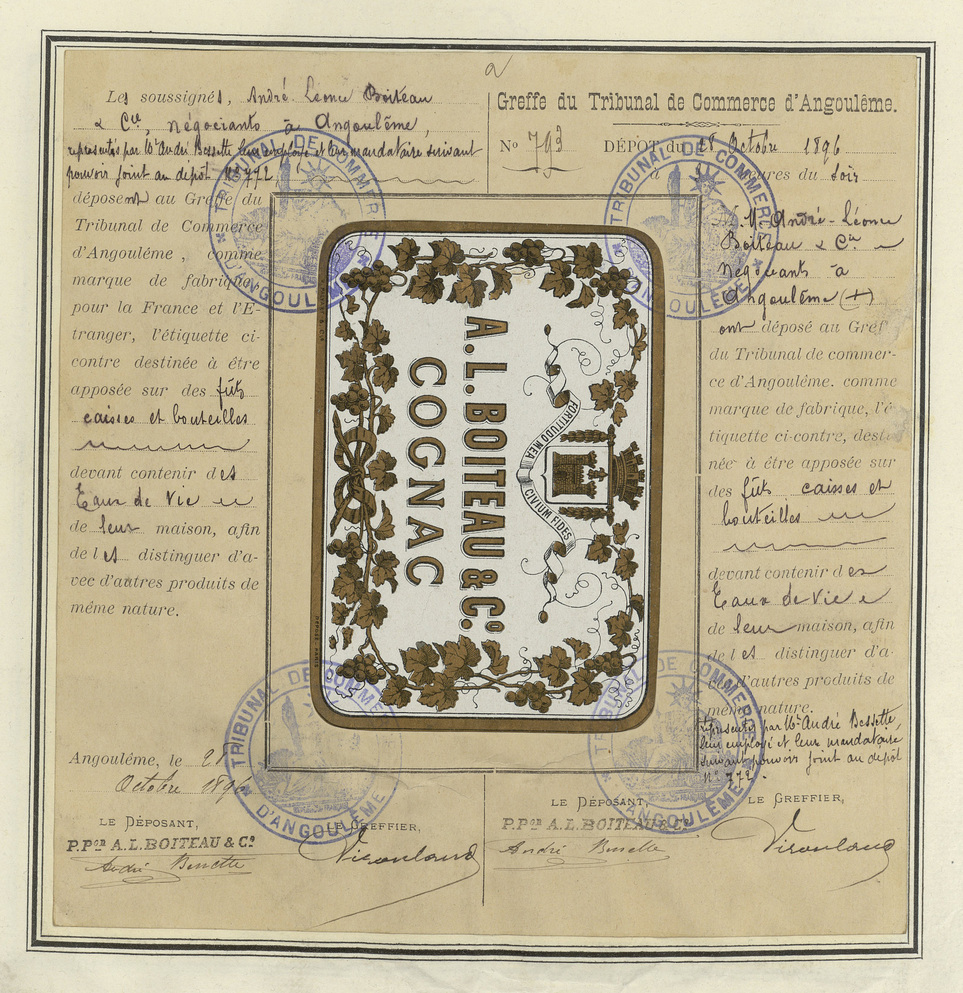 a
Les soussignés, André Léonce Boiteau
& Cie, négociants à Angoulême,
représentés par Mr André Bessette leur employé et leur mandataire suivant
pouvoir joint au dépôt No 772
déposent au Greffe du
Tribunal de Commerce
d'Angoulême, comme
marque de fabrique,
pour la France et l'É-
tranger, l'étiquette ci-
contre destinée à être
apposée sur des fûts
caisses et bouteilles
devant contenir des
Eaux de Vie
de leur maison, afin
de les distinguer d'a-
vec d'autres produits de
même nature.
Angoulême, le 28
Octobre 1896
LE DÉPOSANT,
P.Pon A.L. BOITEAU & Co
André Bessette
LE GREFFIER,
Greffe du Tribunal de Commerce d'Angoulême.
No 793 DÉPÔT du 28 Octobre 1896
à heures du soir
M. André-Léonce
Boiteau & Cie
négociants à
Angoulême (+)
ont déposé au Gref
du Tribunal de commer-
ce d'Angoulême. comme
marque de fabrique, l'é
tiquette ci-contre, desti
née à être apposée sur
des fûts caisses et
bouteilles
devant contenir des
Eaux de Vie
de leur maison, afin
de les distinguer d'a-
vec d'autres produits de
même nature.
représentés par Mr André Bessette,
leur employé et leur mandataire
suivant pouvoir joint au dépôt
No 772.
LE DÉPOSANT,
P.Pon A.L. BOITEAU & Co
André Bessette
LE GREFFIER,
A.L. BOITEAU & Co.
COGNAC
FORTITUDO MEA CIVIUM FIDES
TRIBUNAL DE COMMERCE
D'ANGOULÊME
TRIBUNAL DE COMMERCE
D'ANGOULÊME
TRIBUNAL DE COMMERCE
D'ANGOULÊME
TRIBUNAL DE COMMERCE
D'ANGOULÊME